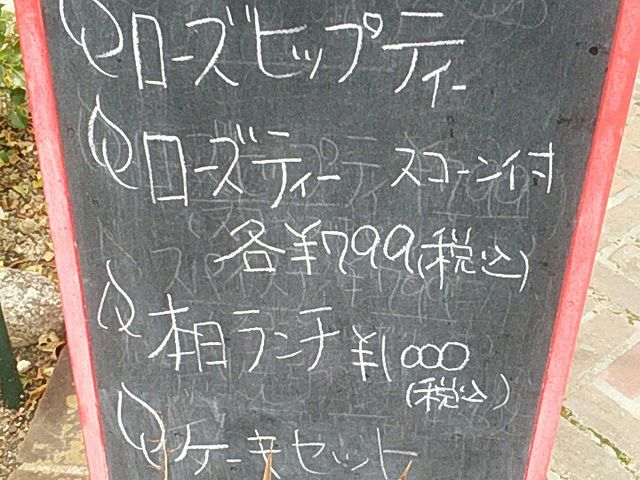 ローズヒップティー
ローズティー スコーン付
各¥799(税込)
本日ランチ ¥1000
(税込)
ケーキセット